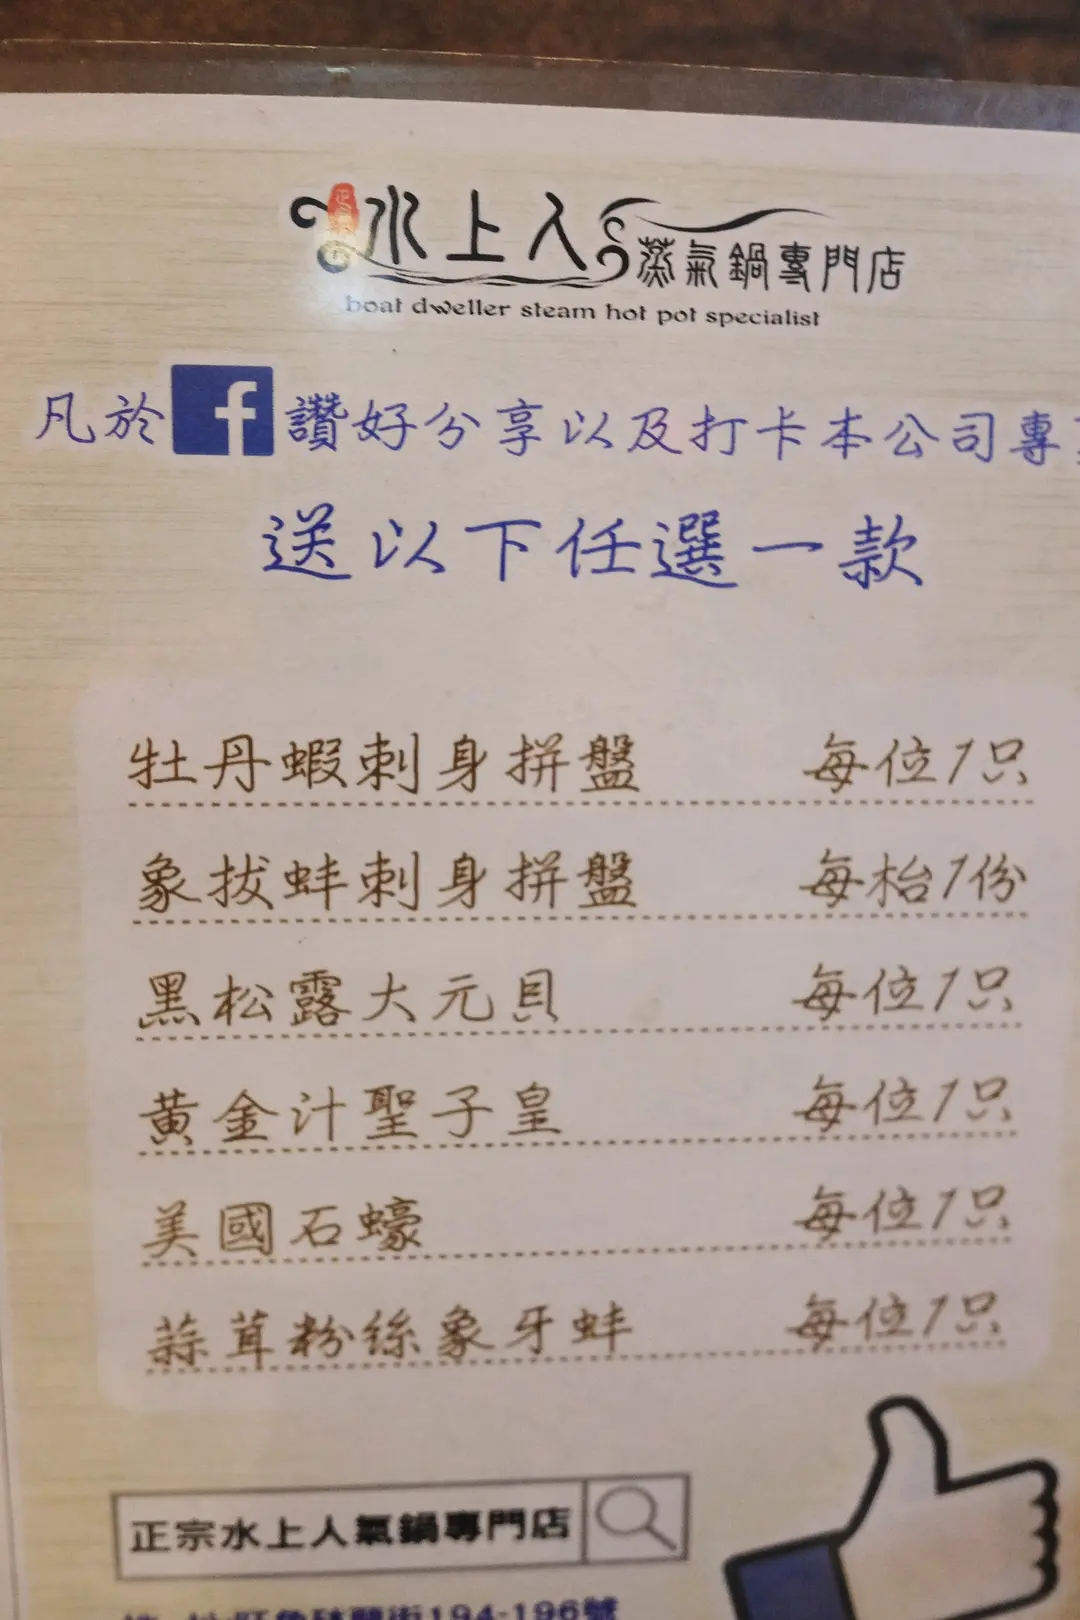 水上人蒸氣鍋專門店
boat dweller steam hot pot specialist
凡於f讚好分享以及打卡本公司專
送以下任選一款
牡丹蝦刺身拼盤 每位1只
象拔蚌刺身拼盤 每枱1份
黑松露大元貝 每位1只
黃金汁聖子皇 每位1只
美國石蠔 每位1只
蒜茸粉絲象牙蚌 每位1只
正宗水上人氣鍋專門店
194-196號